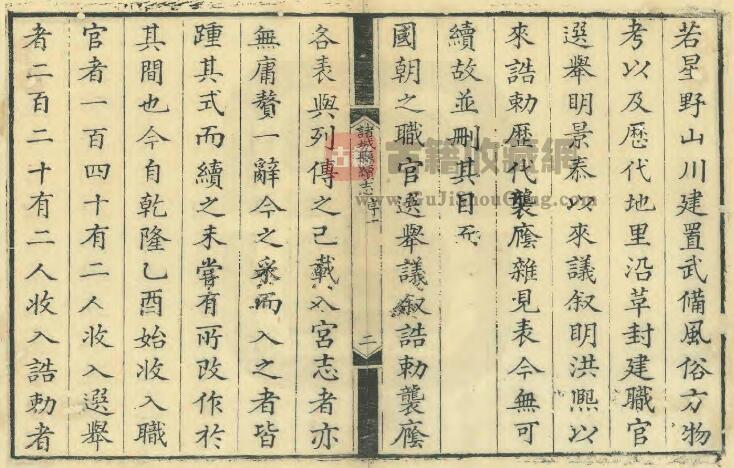 若星野山川建置武備風俗方物
考以及歷代地里沿革封建職官
選舉明景泰以來議叙明洪熙以
來誥勅歷代襲廕雜見表今無可
續故並刪其目至
國朝之職官選舉議叙誥勅襲廕
諸城縣續志 序一
二
各表與列傳之已載入宮志者亦
無庸贅一辭今之采而入之者皆
踵其式而續之未嘗有所改作於
其間也今自乾隆乙酉始收入職
官者一百四十有二人收入選舉
者二百二十有二人收入誥勅者
古籍收藏網
www.GuJiShouCang.com